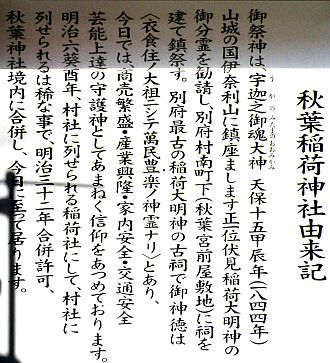 秋葉稲荷神社由来記
御祭神は、宇迦之御魂大神 天保十五甲辰年(八四四年)
うかのみたまのおおみかみ
山城の国伊奈利山に鎮座まします正一位伏見稲荷大明神の
御分霊を勧請し、別府村南町下(秋葉宮前屋敷地)に祠を
建て鎮祭す。別府最古の稲荷大明神の古祠で御神徳は
〈衣食住ノ大祖ニシテ萬民豊楽ノ神霊ナリ〉とあり、
今日では、商売繁盛・産業興隆・家内安全・交通安全
芸能上達の守護神としてあまねく信仰をあつめております。
明治六癸酉年、村社に列せられる稲荷社にして、村社に
列せられるは稀な事で、明治三十二年合併許可、
秋葉神社境内に合併し、今日に至って居ります。